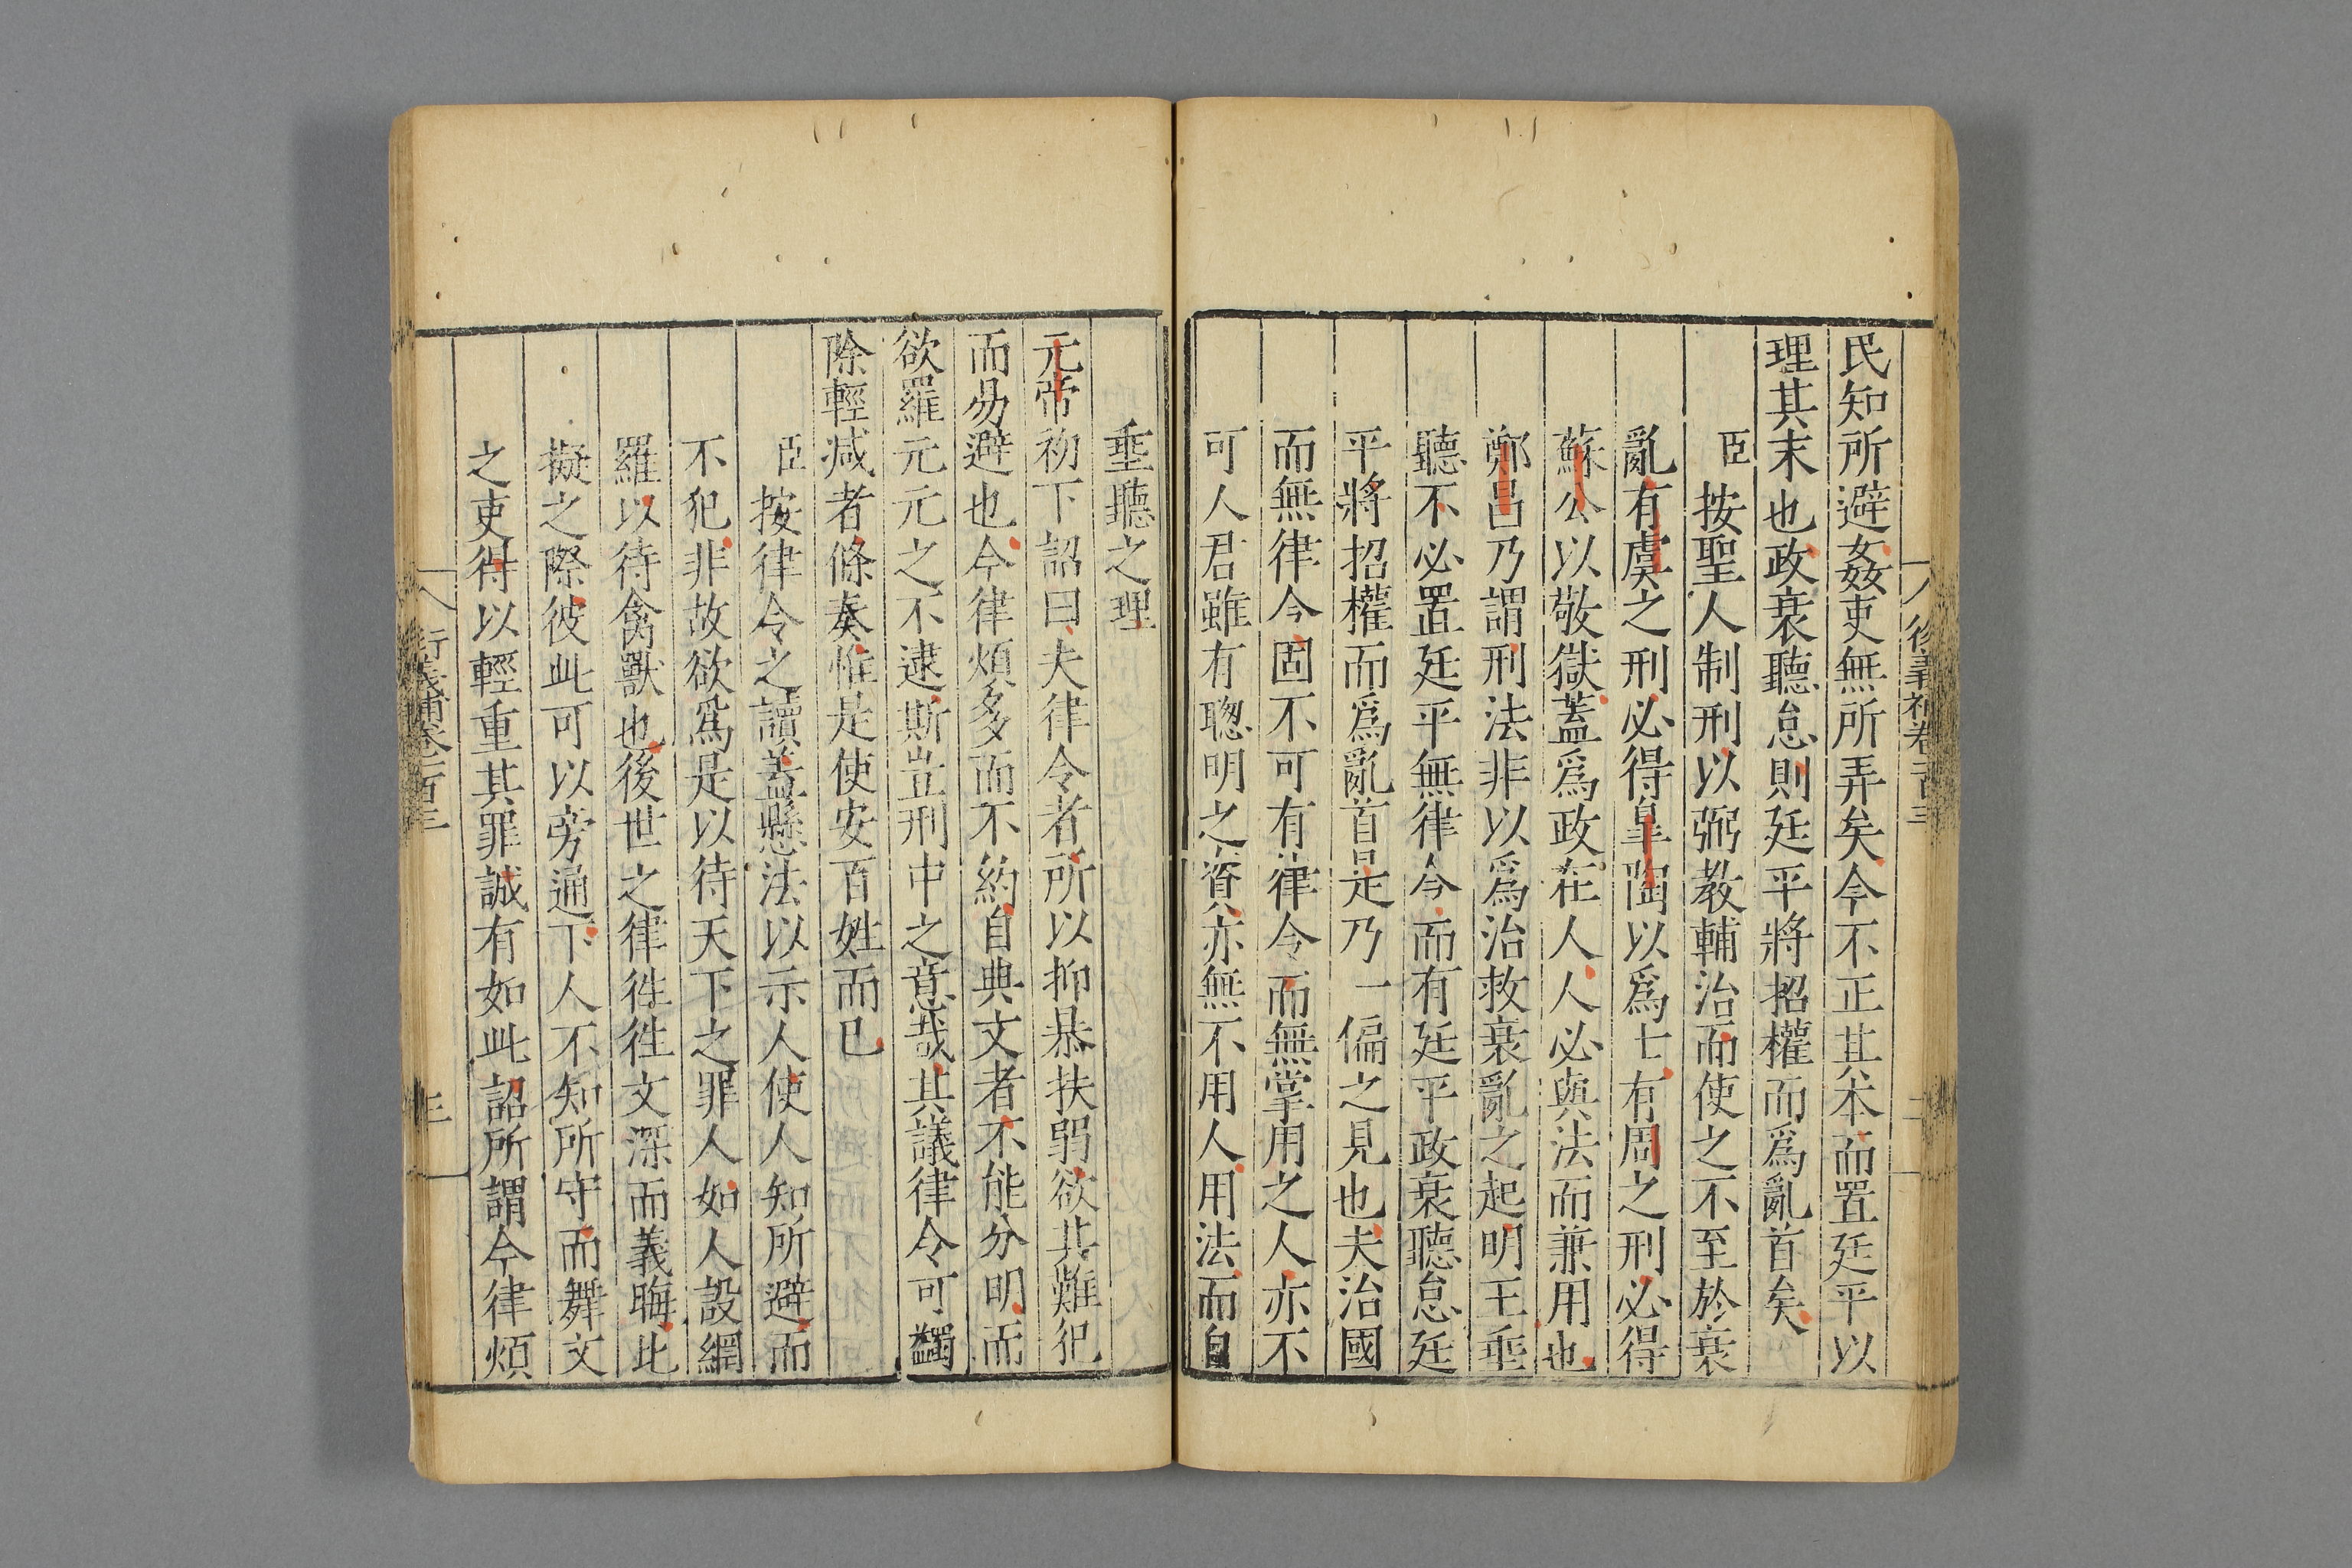 民知所避姦吏無所弄矣今不正其本而置廷平以
理其末也政衰聽怠則廷平將招權而爲亂首矣
臣按聖人制刑以弼教輔治而使之不至於衰
亂有虞之刑必得皐陶以爲士有周之刑必得
蘇公以敬獄蓋爲政在人人必與法而兼用也
鄭昌乃謂刑法非以爲治救衰亂之起明王垂
聽不必置廷平無律令而有廷平政衰聽怠廷
平將招權而爲亂首是乃一偏之見也夫治國
而無律令固不可有律令而無掌用之人亦不
可人君雖有聰明之資亦無不用人用法而自
垂聽之理
元帝初下詔曰夫律令者所以抑暴扶弱欲其難犯
而易避也今律煩多而不約自典文者不能分明而
欲羅元元之不逮斯豈刑中之意哉其議律令可蠲
除輕减者條奏惟是使安百姓而已
臣按律令之讀蓋懸法以示人使人知所避而
不犯非故欲爲是以待天下之罪人如人設網
羅以待禽獸也後世之律徃徃文深而義晦比
擬之際彼此可以旁通下人不知所守而舞文
之吏得以輕重其罪誠有如此詔所謂今律煩
衍義補卷一百三
三